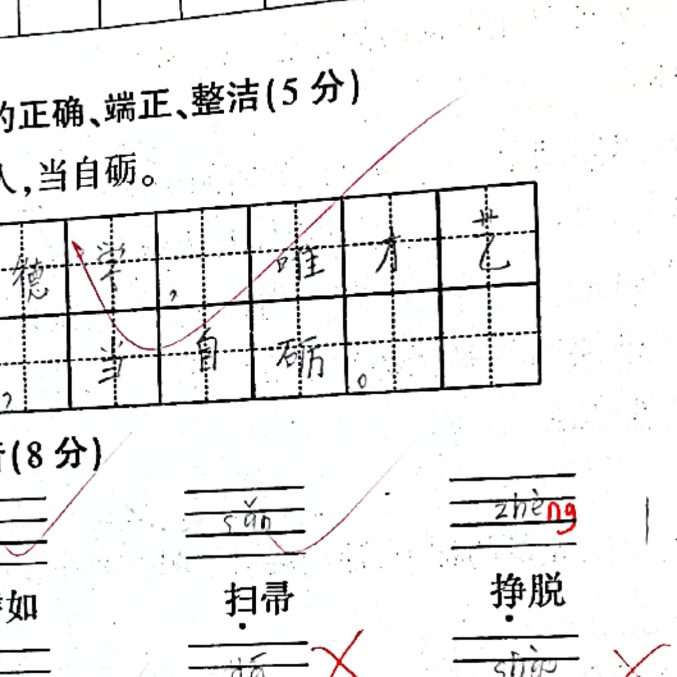 的正确、端正、整洁(5 分)
人,当自砺。
德学,唯才艺
,当自砺。
(8 分)
sǎn zhèng
如 扫帚 挣脱